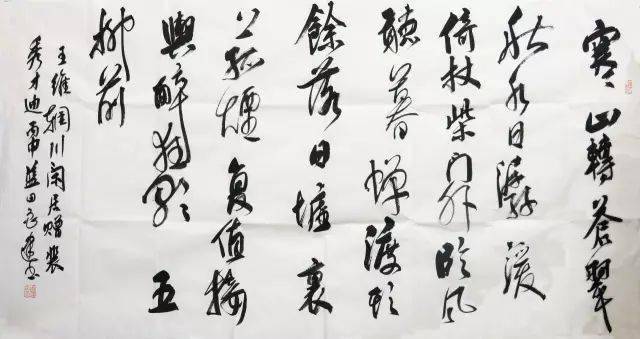 寒山轉蒼翠
秋水日潺湲
倚杖柴門外臨風
聽暮蟬渡頭
餘落日墟裏
上孤煙復值接
輿醉狂歌五
柳前
王維輞川閑居贈裴
秀才迪丙申藍田